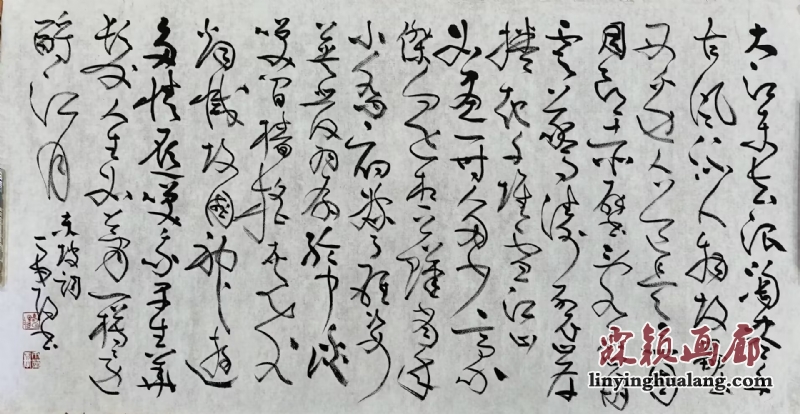 大江东去浪淘尽千
古风流人物故垒
西边人道是三国
周郎赤壁乱石
云惊涛岸
捲起千堆雪江山
如画一时多少豪
杰遥想公瑾当年
小乔初嫁了雄姿
英发羽扇纶巾谈
笑间樯橹灰飞
烟灭故国神游
多情应笑我早生华
发人生如梦一樽还
酹江月
东坡词
霖颖画廊
linyinghualang.com